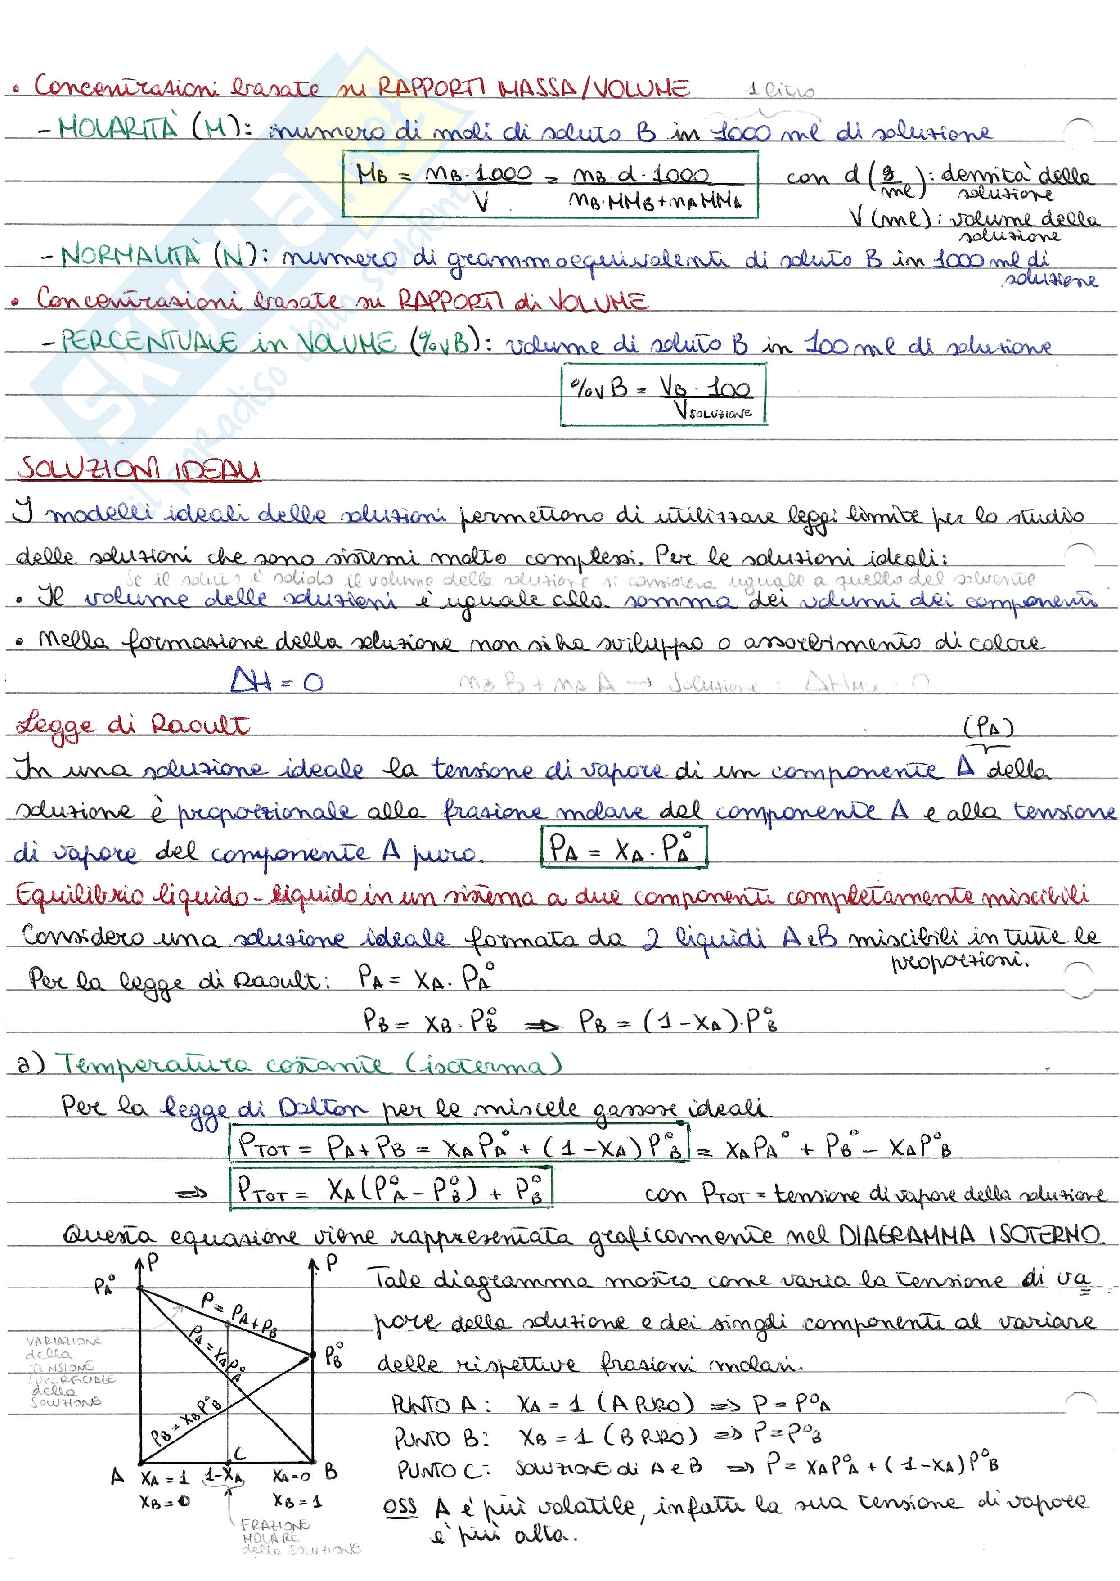 • Concentrazioni basate su RAPPORTI MASSA/VOLUME 1 litro
- MOLARITÀ (M): numero di moli di soluto B in 1000 ml di soluzione
MB = nB·1000 / V = nB d·1000 / nB·MMB + nA MMA con d (g/ml): densità della soluzione
V (ml): volume della soluzione
- NORMALITÀ (N): numero di grammoequivalenti di soluto B in 1000 ml di soluzione
• Concentrazioni basate su RAPPORTI di VOLUME
- PERCENTUALE in VOLUME (%vB): volume di soluto B in 100 ml di soluzione
%v B = VB · 100 / VSOLUZIONE
SOLUZIONI IDEALI
I modelli ideali delle soluzioni permettono di utilizzare leggi limite per lo studio
delle soluzioni che sono sistemi molto complessi. Per le soluzioni ideali:
se il soluto è solido il volume della soluzione si considera uguale a quello del solvente
• Il volume delle soluzioni è uguale alla somma dei volumi dei componenti
• Nella formazione della soluzione non si ha sviluppo o assorbimento di calore
ΔH = 0 nB B + nA A → Soluzione :
Legge di Raoult (PA)
In una soluzione ideale la tensione di vapore di un componente A della
soluzione è proporzionale alla frazione molare del componente A e alla tensione
di vapore del componente A puro. PA = XA · PA°
Equilibrio liquido - liquido in un sistema a due componenti completamente miscibili
Considero una soluzione ideale formata da 2 liquidi A e B miscibili in tutte le proporzioni.
Per la legge di Raoult: PA = XA · PA°
PB = XB · PB° ⇒ PB = (1-XA)·PB°
a) Temperatura costante (isoterma)
Per la legge di Dalton per le miscele gassose ideali
PTOT = PA + PB = XA PA° + (1-XA) PB° = XA PA° + PB° - XA PB°
⇒ PTOT = XA (PA° - PB°) + PB° con PTOT = tensione di vapore della soluzione
Questa equazione viene rappresentata graficamente nel DIAGRAMMA ISOTERMO.
P P
PA°
P = PA + PB
PA = XA PA°
PB°
PB = XB PB°
VARIAZIONE
della
TENSIONE
della
SOLUZIONE
C
A XA = 1 1-XA XA = 0 B
XB = 0 XB = 1
FRAZIONE
MOLARE
della SOLUZIONE
Tale diagramma mostra come varia la tensione di va
pore della soluzione e dei singoli componenti al variare
delle rispettive frazioni molari.
PUNTO A: XA = 1 (A PURO) ⇒ P = P°A
PUNTO B: XB = 1 (B PURO) ⇒ P = P°B
PUNTO C: SOLUZIONE di A e B ⇒ P = XA P°A + (1-XA) P°B
OSS A è più volatile, infatti la sua tensione di vapore
è più alta.